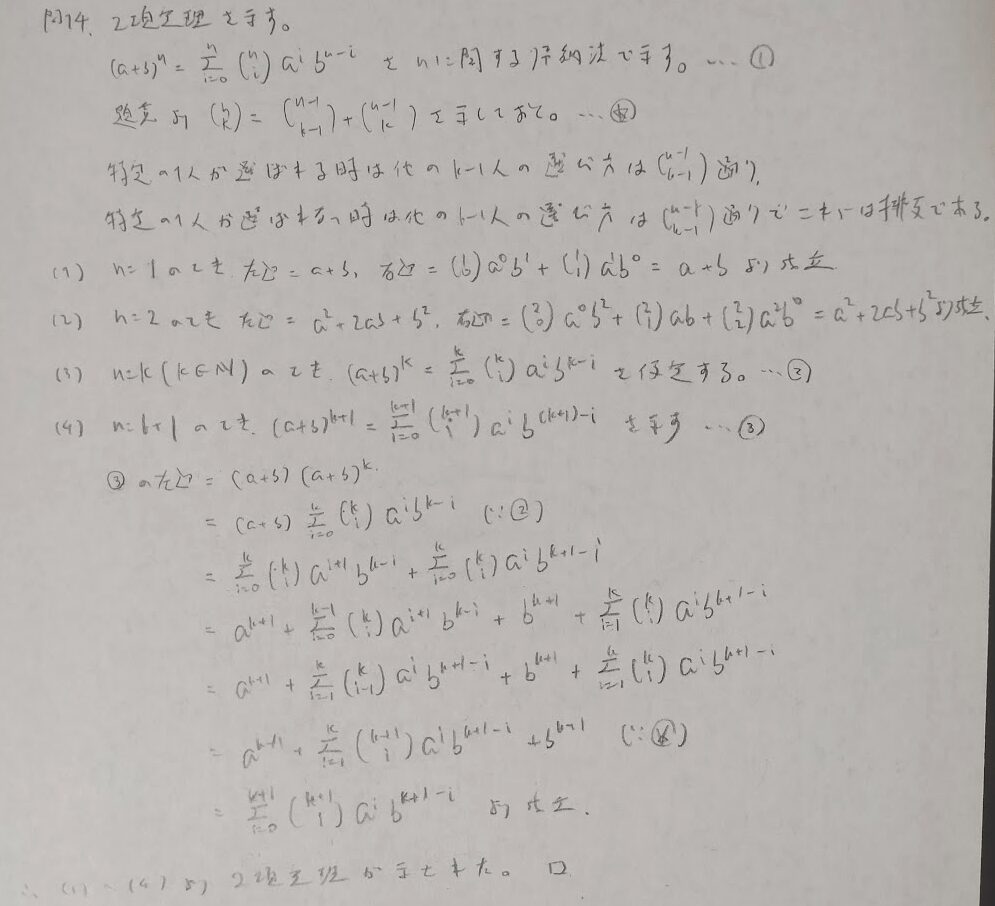 問14. 2項定理を示す。
(a+b)^n = Σ_{i=0}^{n} (n i) a^i b^{n-i} を nに関する帰納法で示す。 … ①
題意より (n k) = (n-1 k-1) + (n-1 k) を示しておく。 … ㊟
特定の1人が選ばれる時は他の k-1人の選び方は (n-1 k-1) 通り,
特定の1人が選ばれない時は他の k-1人の選び方は (n-1 k-1) 通りで これらは排反である。
(1) n=1 のとき 左辺 = a+b, 右辺 = (1 0) a^0 b^1 + (1 1) a^1 b^0 = a+b より成立
(2) n=2 のとき 左辺 = a^2+2ab+b^2, 右辺 = (2 0) a^0 b^2 + (2 1) ab + (2 2) a^2 b^0 = a^2+2ab+b^2 より成立.
(3) n=k (k∈N) のとき. (a+b)^k = Σ_{i=0}^{k} (k i) a^i b^{k-i} を仮定する。 … ②
(4) n=k+1 のとき. (a+b)^{k+1} = Σ_{i=0}^{k+1} (k+1 i) a^i b^{(k+1)-i} を示す … ③
③ の左辺 = (a+b) (a+b)^k.
= (a+b) Σ_{i=0}^{k} (k i) a^i b^{k-i} (∵②)
= Σ_{i=0}^{k} (k i) a^{i+1} b^{k-i} + Σ_{i=0}^{k} (k i) a^i b^{k+1-i}
= a^{k+1} + Σ_{i=0}^{k-1} (k i) a^{i+1} b^{k-i} + b^{k+1} + Σ_{i=1}^{k} (k i) a^i b^{k+1-i}
= a^{k+1} + Σ_{i=1}^{k} (k i-1) a^i b^{k+1-i} + b^{k+1} + Σ_{i=1}^{k} (k i) a^i b^{k+1-i}
= a^{k+1} + Σ_{i=1}^{k} (k+1 i) a^i b^{k+1-i} + b^{k+1} (∵㊟)
= Σ_{i=0}^{k+1} (k+1 i) a^i b^{k+1-i} より成立.
∴ (1)~(4) より 2項定理が示された。 □